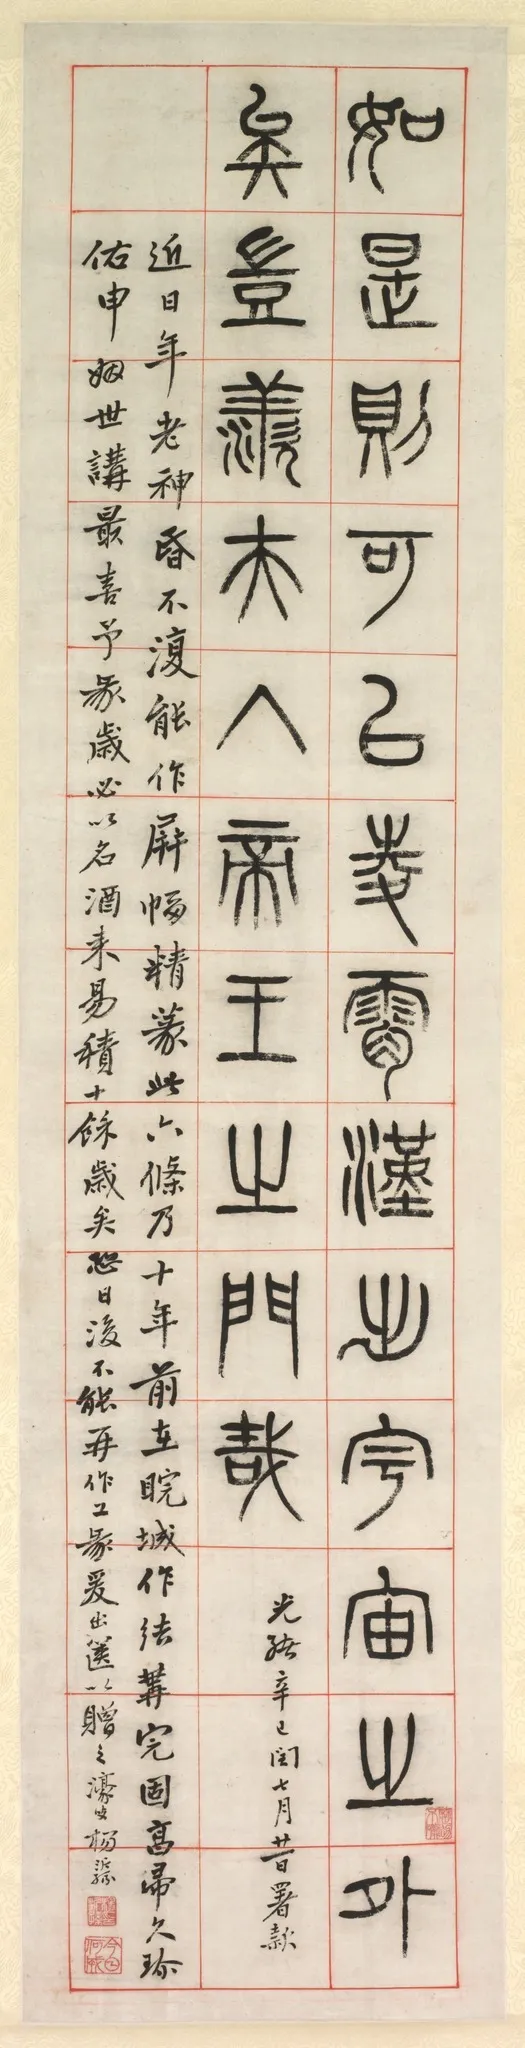 如是則可以凌霄漢出宇宙之外
矣豈羨夫入帝王之門哉
光緒辛巳閏七月廿日署款
近日年老神昏不復能作屏幅精篆此六條乃十年前在皖城作結構完固帚久珍
佑申姻世講最喜予篆歲必以名酒来易積十餘歲矣恐日後不能再作工篆爰出篋以贈之濠叟楊沂孫